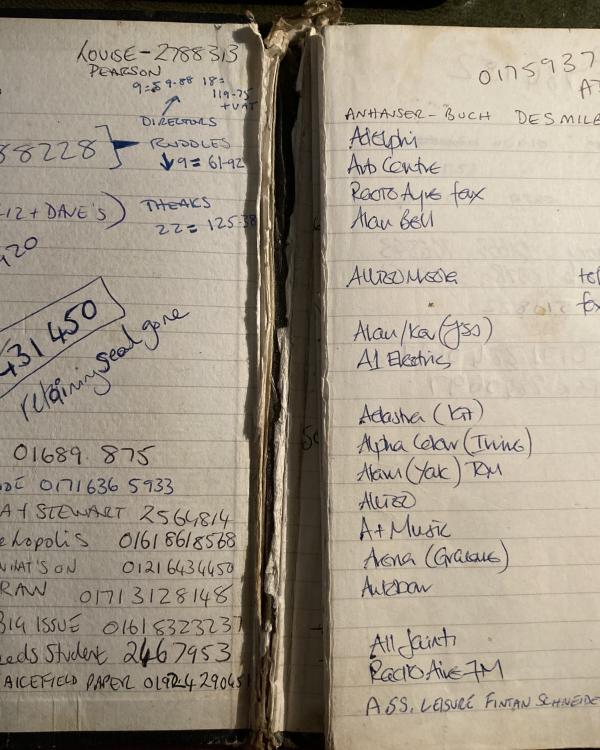 LOUISE - 2788313
PEARSON
9=59.88 18=
119-75
+VAT
DIRECTORS
88228
RUDDLES
9= 61-92
LIZ + DAVE'S)
THEAKS
22= 125-38
920
431450
retaining seal gone
01689 875
0171 636 5933
STEWART 2564814
hopolis 01618618568
WHAT'S ON 01216434450
RAW 01713128148
BIG ISSUE 01618323237
eeds Student 2467953
PAPER
0175937
ANHAUSER - BUCH DESMILE
Adelphi
Arts Centre
Radio Ayre fax
Alan Bell
Allied Media
fax
Alan/Kev (JSS)
A1 Electrics
Adastra (Kit)
Alpha Colour (Irving)
Adam (Yak) TDM
Allied
A+ Music
Arena (Graeme)
Autobar
All Saints
Radio Aire FM
ASS. LEISURE FINTAN SCHNEIDE